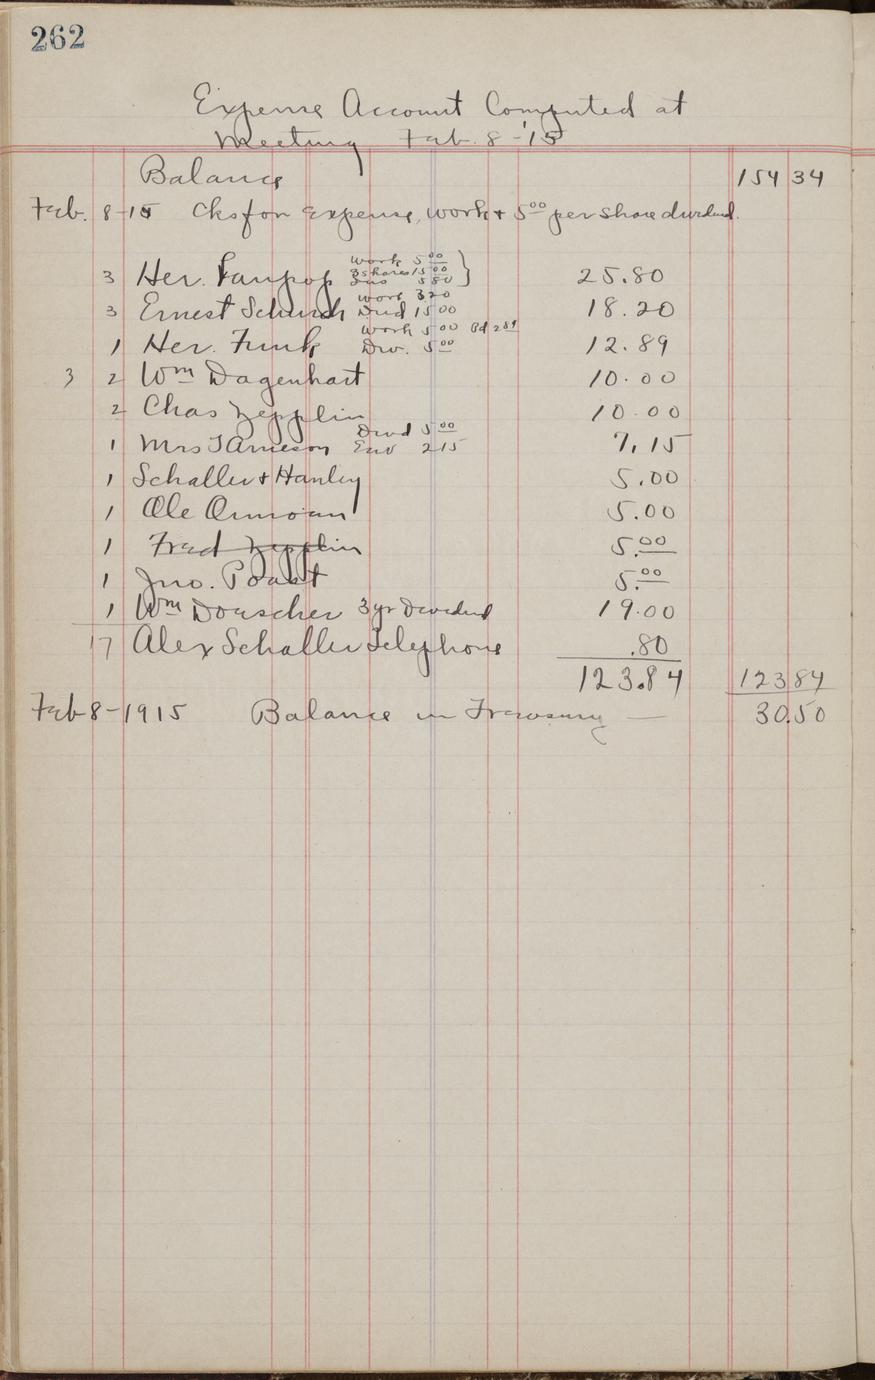 262
Expense Account Computed at
Meeting Feb. 8-'15
Balance 154 34
Feb. 8-15 Cks for expense, work & 5.00 per share dividend.
Work 5.00
3 shares 15.00
3 Her. Ins 5 80 } 25.80
work 3.20
3 Ernest Schunk Divd 15 00 18.20
Work 5.00 Pd 2.89
1 Her. Funk Div. 5.00 12.89
3 2 Wm Dagenhart 10.00
2 Chas Zepplin 10.00
Divd 5.00
1 Mrs 2 15 7.15
1 Schaller & Hanley 5.00
1 Ole 5.00
1 Fred Zepplin 5.00
1 Jno. Poast 5.00
1 Wm Doescher 3 yr Dividend 19.00
17 Alex Schaller Telephone .80
123.84 123 84
Feb 8-1915 Balance in Treasury — 30.50